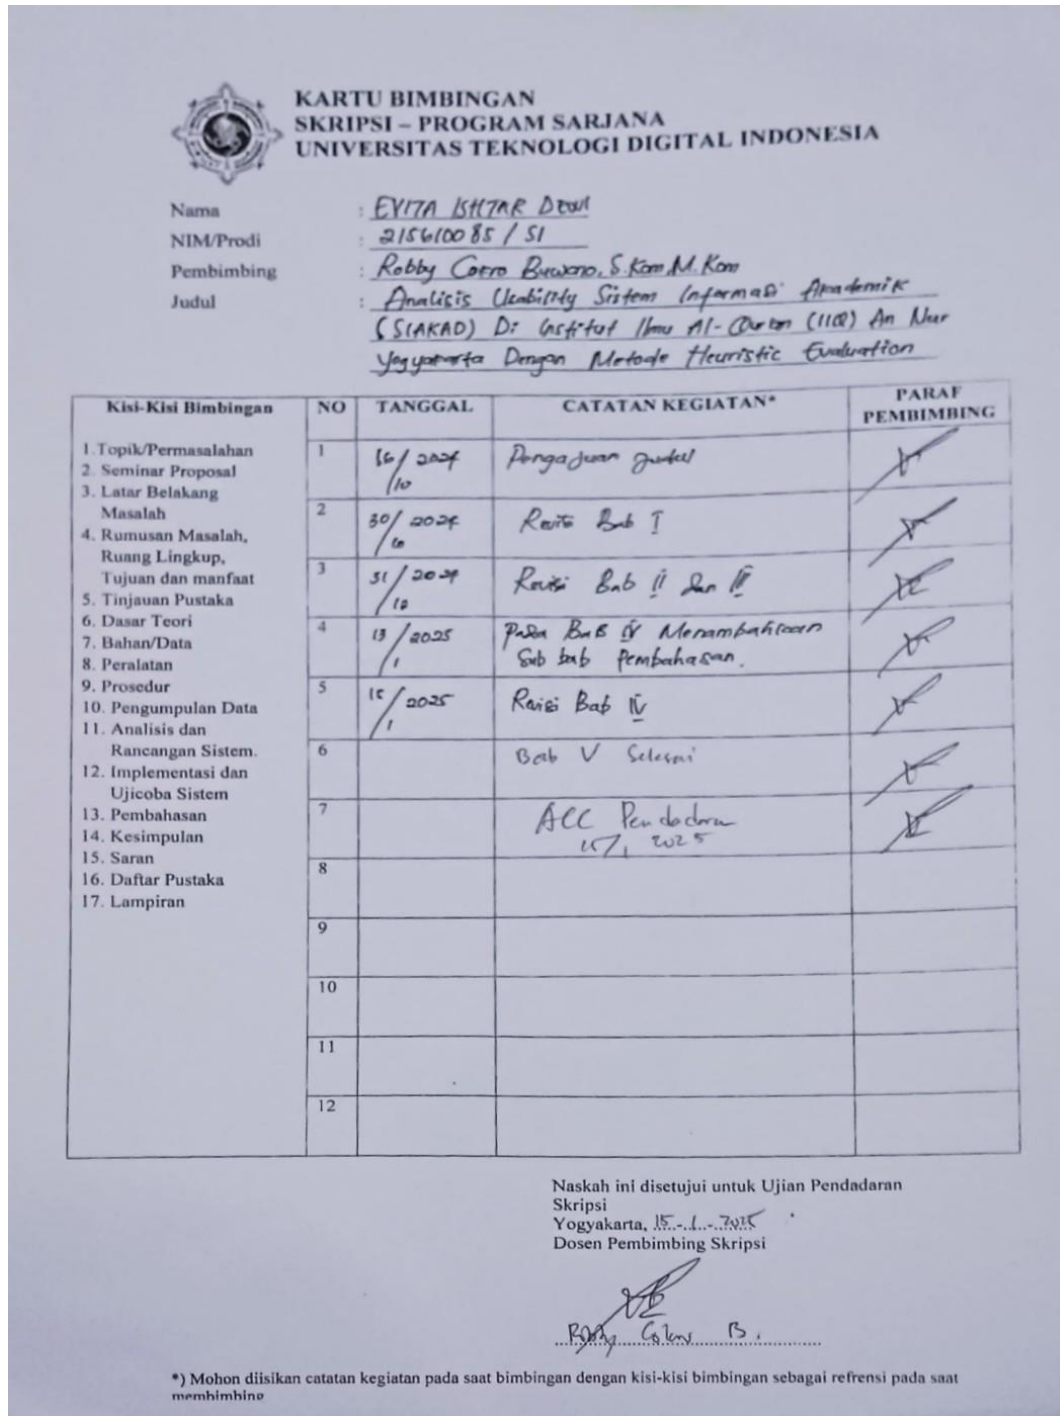 KARTU BIMBINGAN
SKRIPSI – PROGRAM SARJANA
UNIVERSITAS TEKNOLOGI DIGITAL INDONESIA
Nama : EVITA ISHTAR DEWI
NIM/Prodi : 215610085 / SI
Pembimbing : Robby Cokro Buwono, S.Kom, M.Kom
Judul : Analisis Usability Sistem Informasi Akademik
(SIAKAD) Di Institut Ilmu Al-Qur'an (IIQ) An Nur
Yogyakarta Dengan Metode Heuristic Evaluation
Kisi-Kisi Bimbingan
1.Topik/Permasalahan
2. Seminar Proposal
3. Latar Belakang
Masalah
4. Rumusan Masalah,
Ruang Lingkup,
Tujuan dan manfaat
5. Tinjauan Pustaka
6. Dasar Teori
7. Bahan/Data
8. Peralatan
9. Prosedur
10. Pengumpulan Data
11. Analisis dan
Rancangan Sistem.
12. Implementasi dan
Ujicoba Sistem
13. Pembahasan
14. Kesimpulan
15. Saran
16. Daftar Pustaka
17. Lampiran
NO TANGGAL CATATAN KEGIATAN* PARAF
PEMBIMBING
1 16/10 2024 Pengajuan judul
2 30/10 2024 Revisi Bab I
3 31/10 2024 Revisi Bab II dan III
4 13/1 2025 Pada Bab IV Menambahkan
Sub bab Pembahasan.
5 15/1 2025 Revisi Bab IV
6 Bab V Selesai
7 ACC Pendadaran
15/1 2025
8
9
10
11
12
Naskah ini disetujui untuk Ujian Pendadaran
Skripsi
Yogyakarta, 15 - 1 - 2025
Dosen Pembimbing Skripsi
Robby Cokro B.
*) Mohon diisikan catatan kegiatan pada saat bimbingan dengan kisi-kisi bimbingan sebagai refrensi pada saat
membimbing